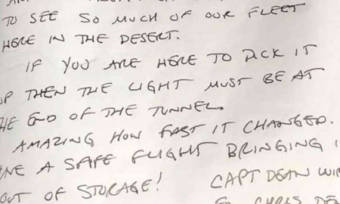 TO SEE SO MUCH OF OUR FLEET
HERE IN THE DESERT.
IF YOU ARE HERE TO PICK IT
UP THEN THE LIGHT MUST BE AT
THE END OF THE TUNNEL.
AMAZING HOW FAST IT CHANGED.
A SAFE FLIGHT BRINGING
OUT OF STORAGE!
CAPT DEAN
CHRIS